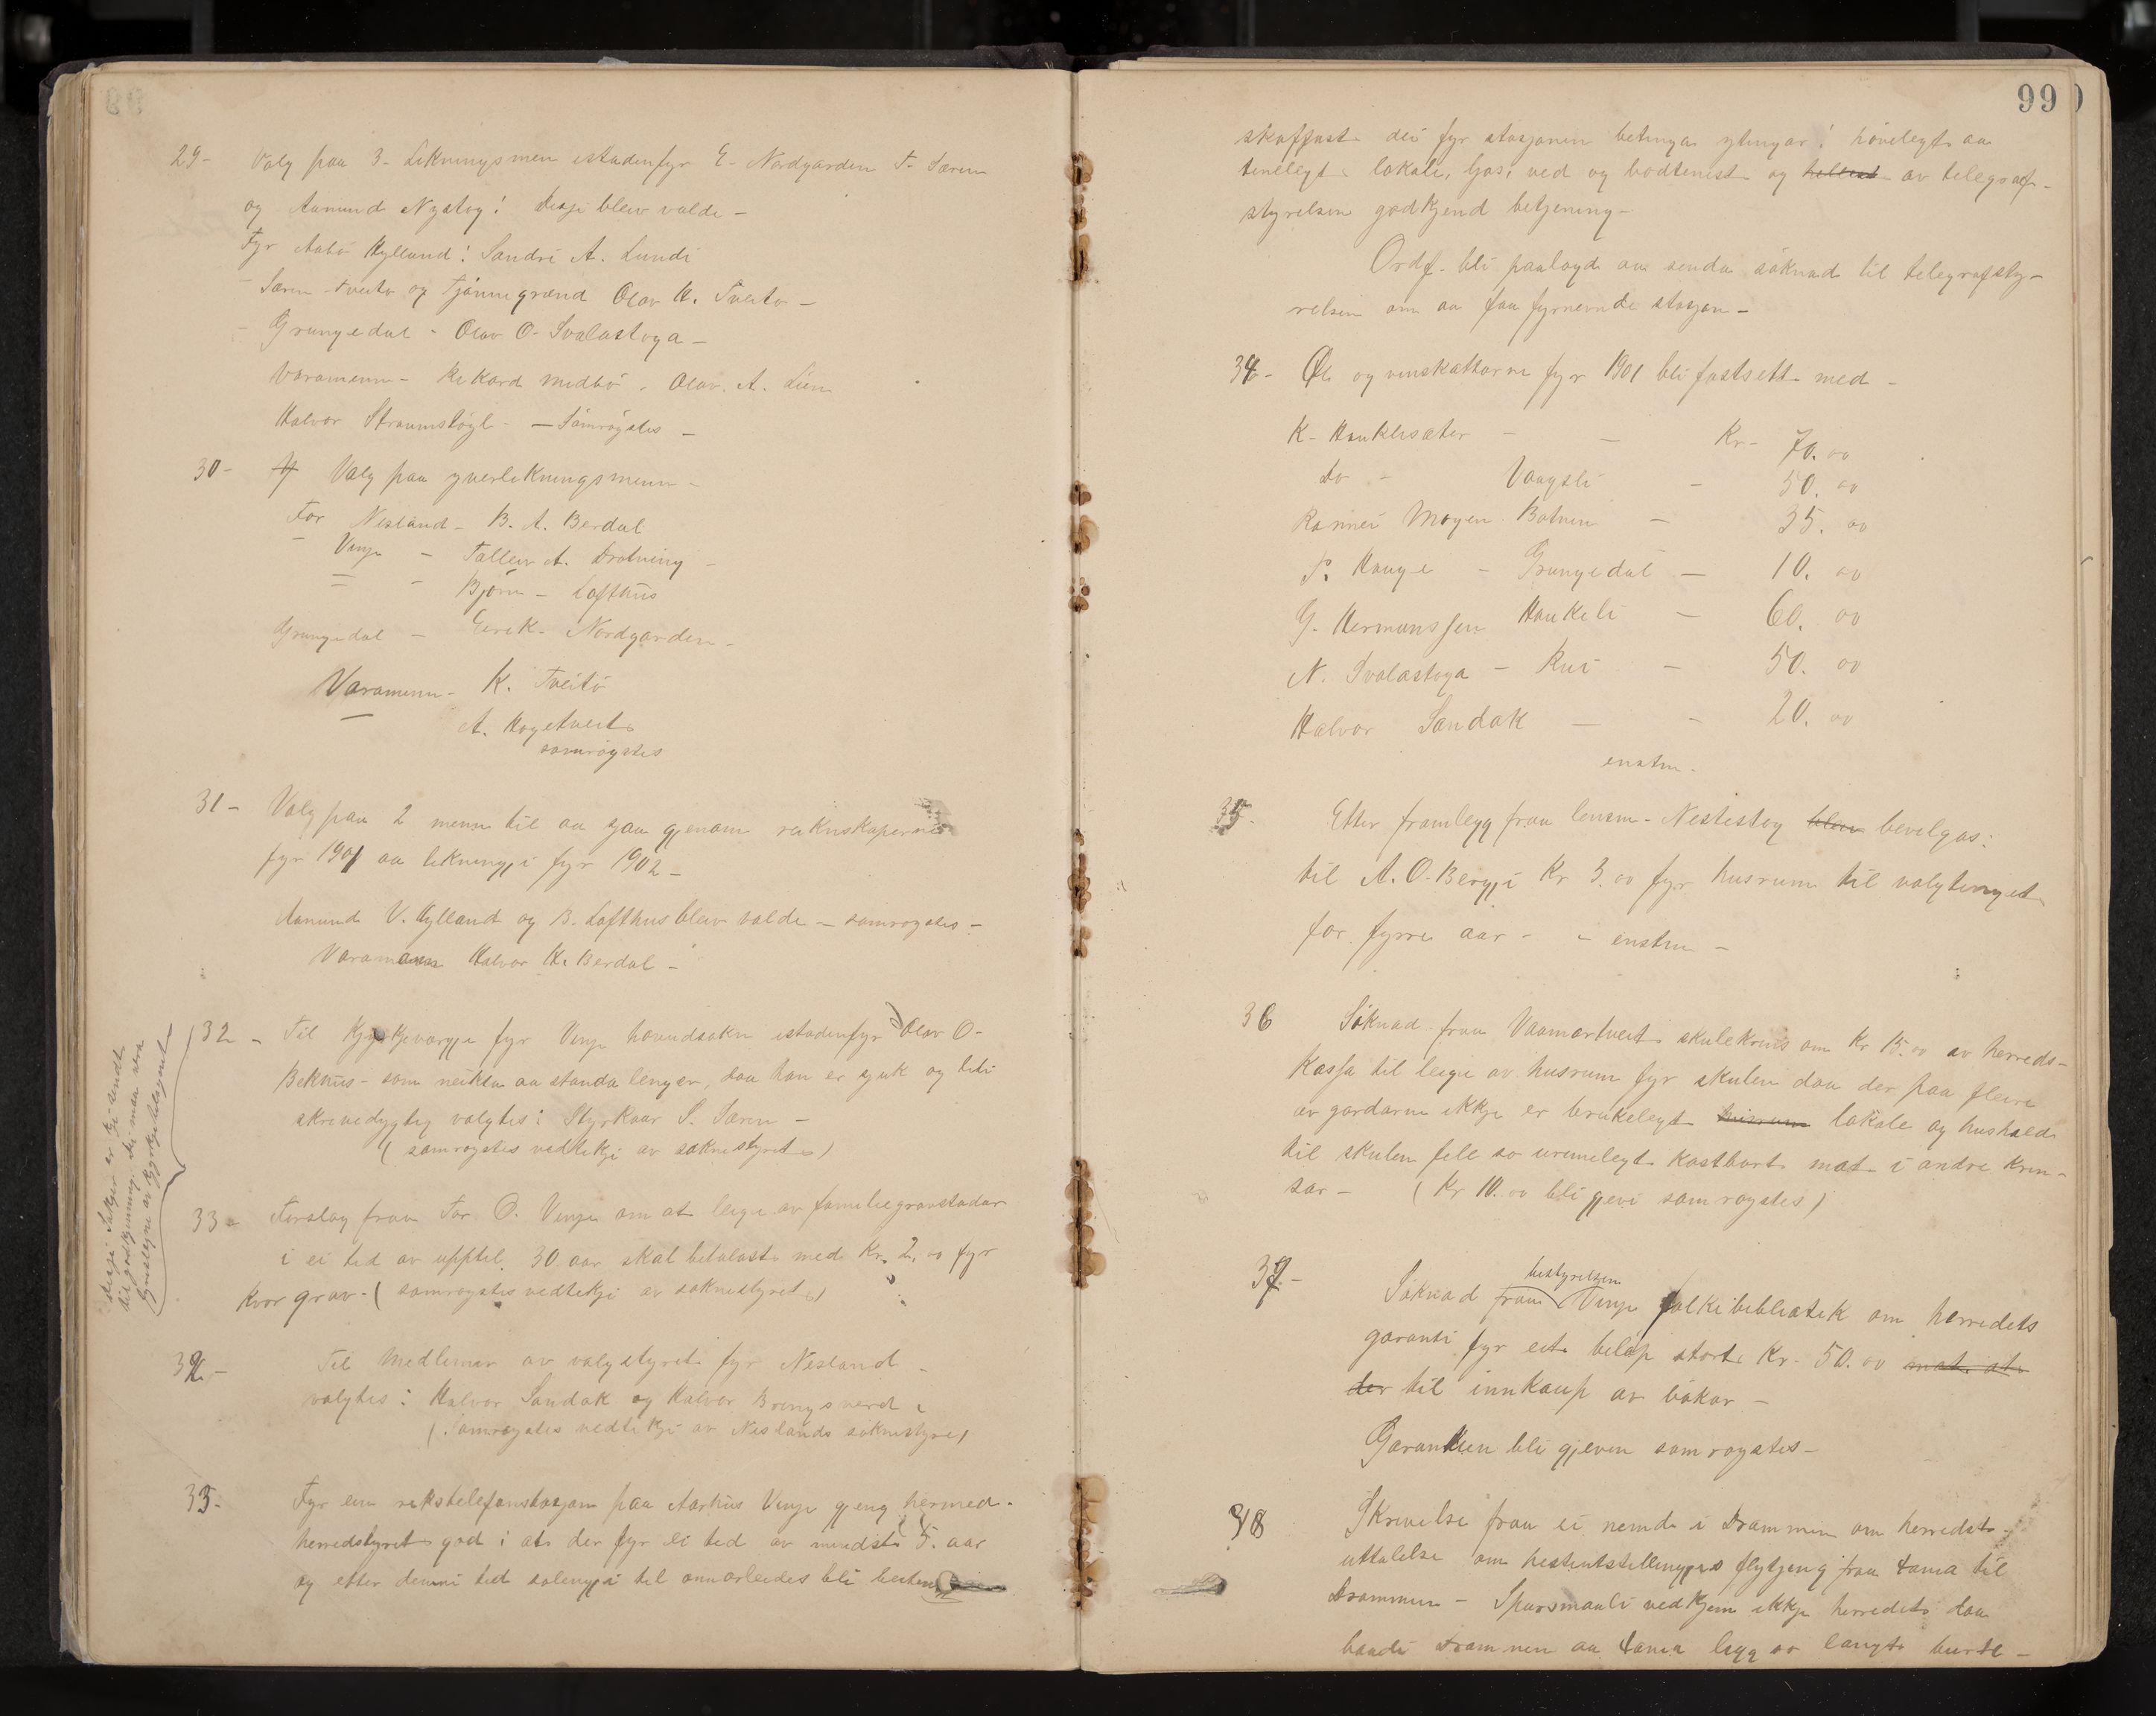 29- Valg paa 3 Likningsmen istadenfyr E. Nordgarden T. Særen
og Aamund Nystog! Desse blev valde -
Fyr Aabö Hylland: Sandri A. Lundi
- Særen Tveito og Tjönnegrænd Olav H. Tveito -
- Grungedal - Olav O. Svalastoga -
Varamenn - Rikard Midbö. Olav. A. Lien
Halvor Straumstöyl - - Samröystes -
30- Valg paa yverlikningsmenn -
For Nesland - B. A. Berdal
- Vinje - Tallev A. Drotning -
= - Björn - Lofthus
Grungedal - Eirik. Nordgarden -
Varamenn - K. Tveito
A. Hogetveit
samröystes
31- Valg paa 2 menn til aa gaa gjenom rekneskaperne
fyr 1901 aa likningji fyr 1902 -
Aamund V. Hylland og B. Lofthus blev valde - samroystes -
Varamann Halvor H. Berdal -
32 - Til Kjyrkjeværgje fyr Vinje hovudsokn istadenfyr Olav O.
Bekhus - som neikta aa standa lenger, daa han er sjuk og liti
skrivedygtig valgtes: Styrkaar S. Særen -
( samroystes vedtikji av soknestyret )
33 - Forslag fraa Tor O. Vinje om at leige av familiegravstadar
i ei tid av upptil 30 aar skal betalast med Kr. 2,00 fyr
kvor grav - ( samroystes vedtikji av soknestyret )
desse Sakjer er ji sendt
til godkjenning, dei maa vera
32- Til Medlemer av valgstyret fyr Nesland -
valgtes: Halvor Sandok og Halvor Bringsverd
( Samroystes vedtikji av Neslands soknestyre )
33- Fyr ein rikstelefonstasjon paa Aarhus Vinje gjeng hermed
herredstyret god i at der fyr ei tid av mindst 5. aar
og etter denne tid solengji til annarleides bli bestemt
99
skaffast dei fyr stasjonen betinga ytingar! hövelegt aa
tenelegt lokale, ljos, ved og bodtenest og av telegraf-
styrelsen godkjend betjening -
Ordf. bli paalagd aa senda söknad til telegrafsty-
relsen om aa faa fyrnemnde stasjon -
34- Öl og vinskattarne fyr 1901 bli fastsett med -
K. Haukliseter - - Kr- 70.00
Do - Vaagsli - 50.00
Rannei Moyen Botnen - 35.00
S. Hauge - Grungedal - 10.00
G. Hermanssen Haukeli - 60.00
N. Svalastoga - Rui - 50.00
Halvor Sandok - - 20.00
enstm.
35. Etter framlegg fraa lensm. Nestestog blev bevilgas:
til A. O. Bergji Kr 3.00 fyr husrum til valgtinget
for fyrre aar - - enstm -
36 Söknad fraa Vaamartveit skulekrins om Kr 15.00 av herreds-
kassa til leige av husrum fyr skulen daa der paa fleire
av gardarne ikkje er brukelegt husrum lokale og hushald
til skulen fell so urimelegt kostbart mot i andre krin-
sar - ( Kr 10.00 bli gjevi samroystes )
37- Söknad fraa bestyrelsen Vinje folkebibliotek om herredets
garanti fyr eit belöp stort Kr. 50.00 mot at
der til innkaup av bökar -
Garantien bli gjeven samroystes -
38 Skrivelse fraa ei nemd i Drammen om herredets
uttalelse om hestutstillingjas flytjing fraa Lama til
Drammen - Spursmaali vedkjem ikkje herredet daa
baade Drammen aa Lama ligg so langt burte -